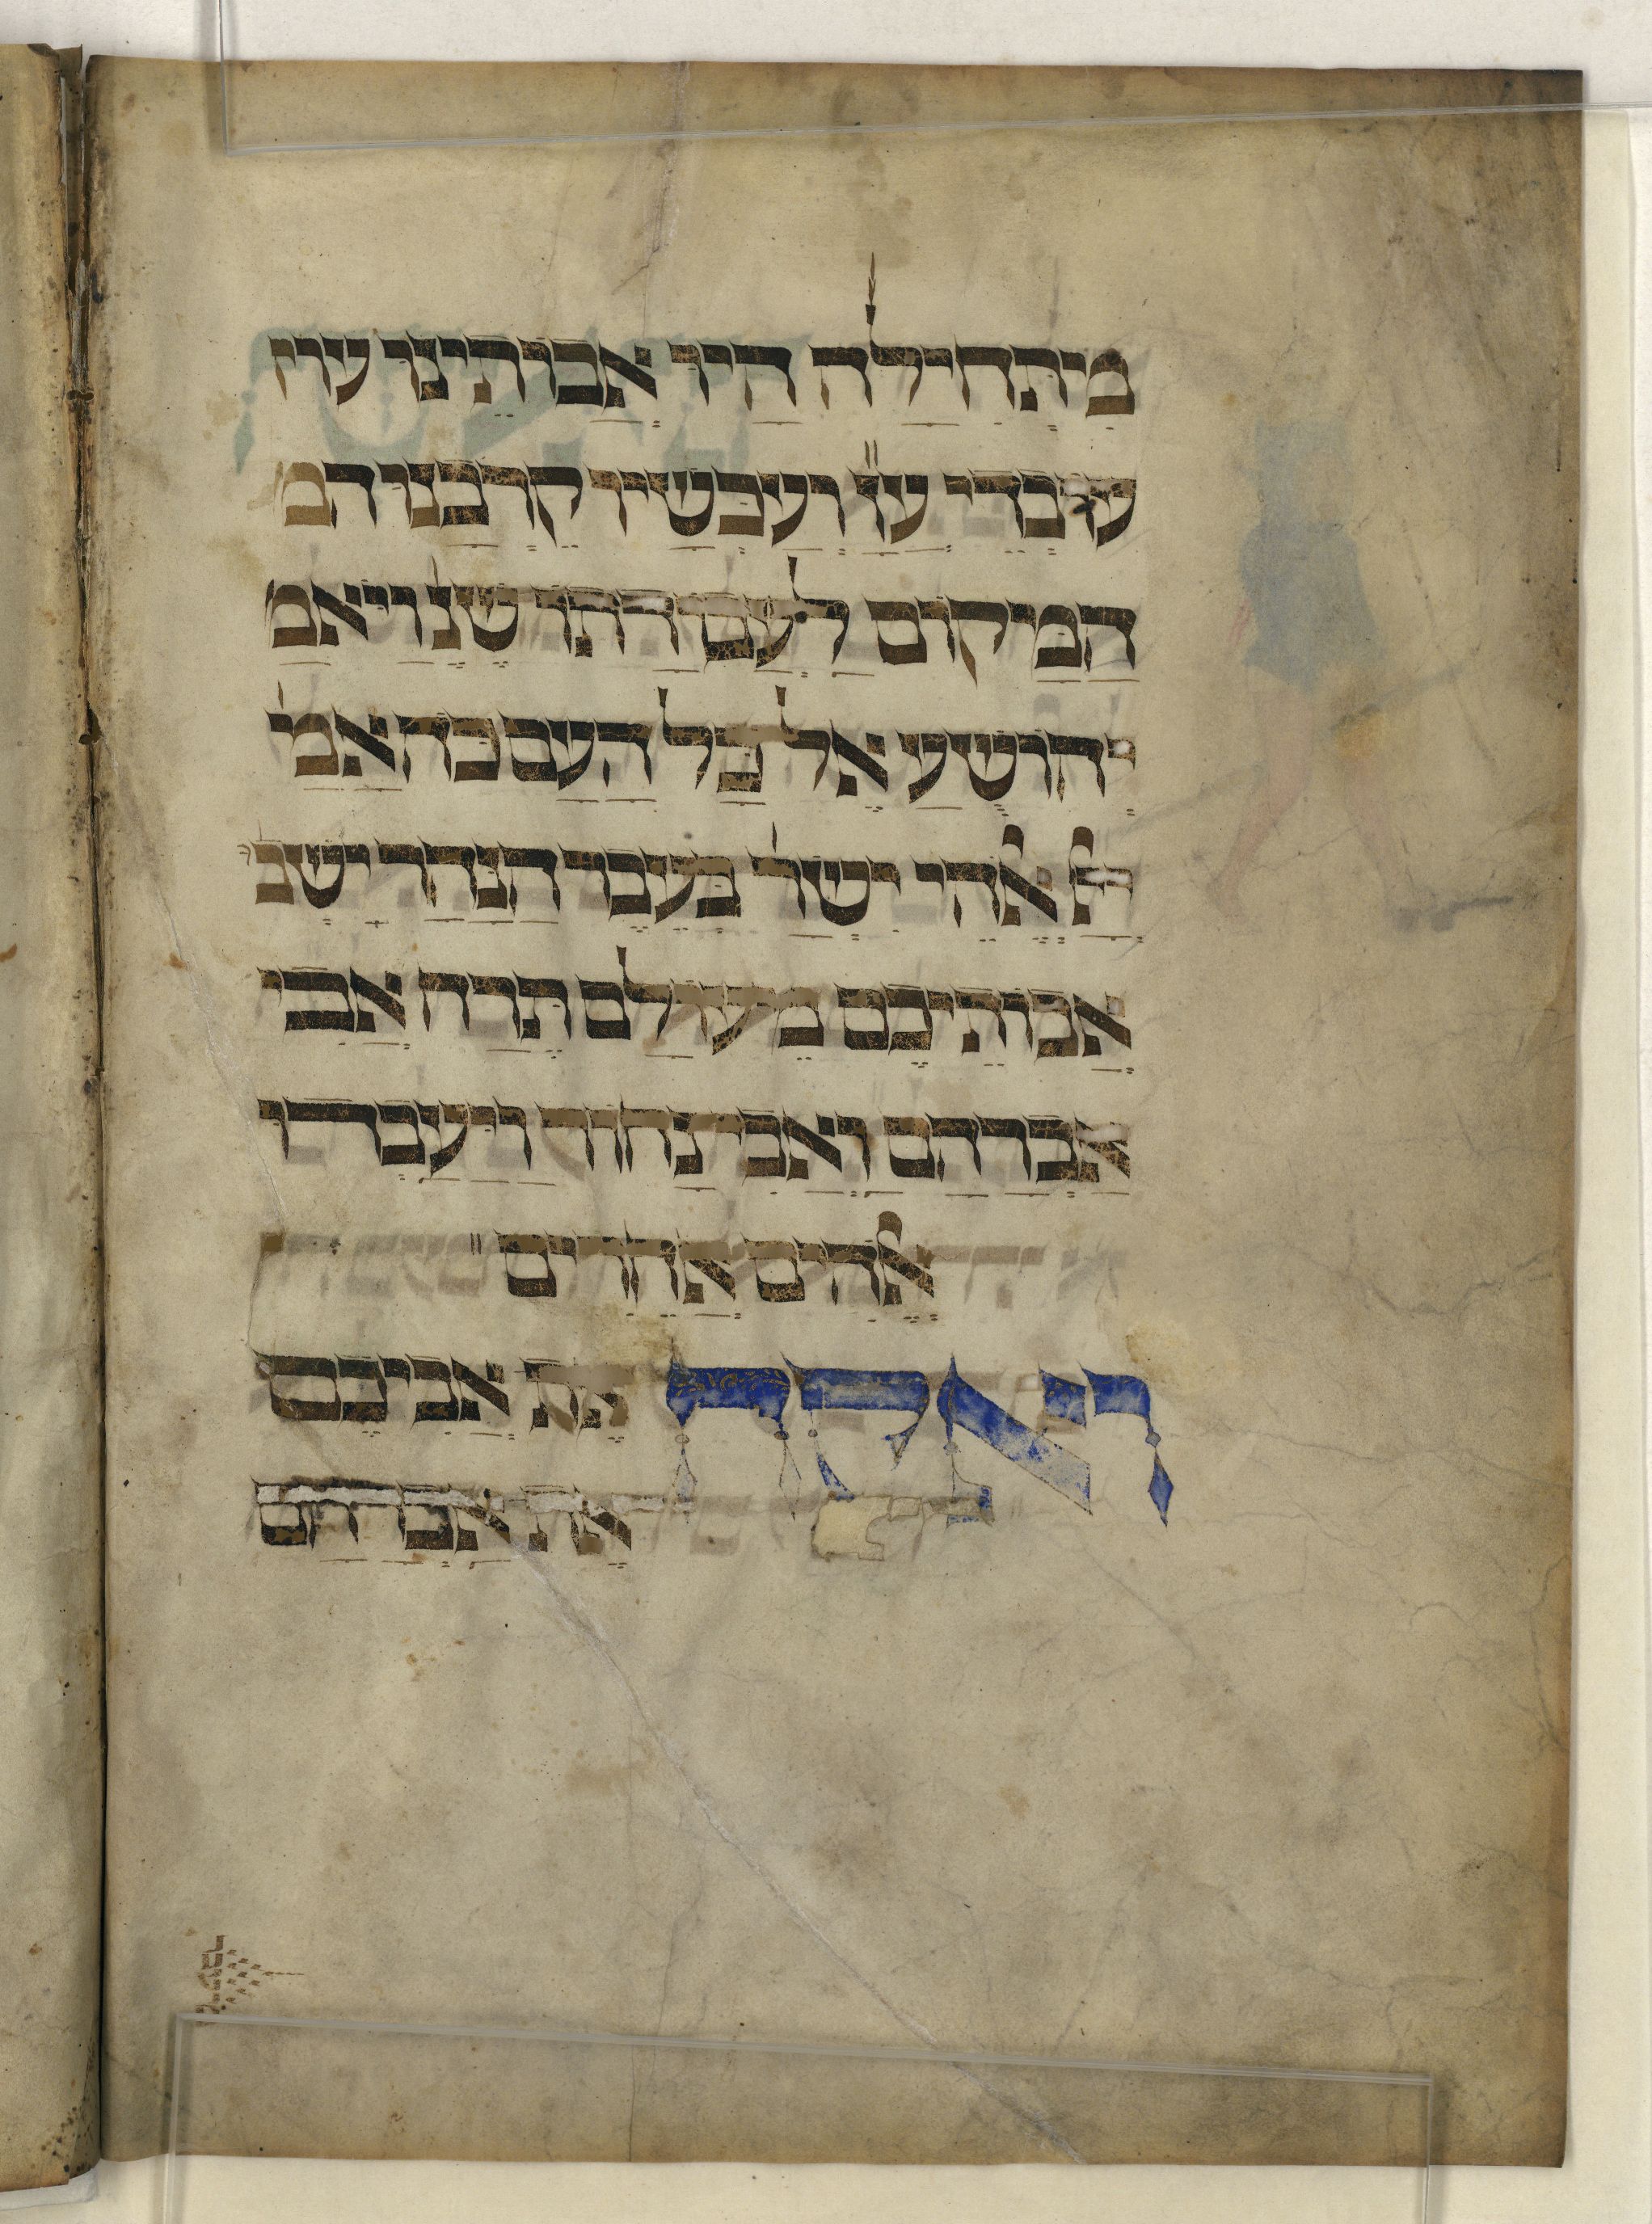 מִיתְחִילָה הָיוּ אֲבוֹתֵינוּ עוין
עוֹבְדֵי ע״ז וְעַכְשָׁיו קֵרְבָנוּ המ
הַמָּיקוֹם לַעֲבוֹדָתוֹ שֶׁנֶּ׳ וַיֹּאמֶ׳
יְהוֹשֻׁעַ אֶל כָּל הָעָם כֹּה אָמַ׳
יְיָ אֱלֹהֵי יִשְׂרָ׳ בְּעֵבֶר הַנָּהָר יָשְׁבוּ
אֲבוֹתֵיכֶם מֵעוֹלָם תֶּרַח אֲבִי
אַבְרָהָם וַאֲבִי נָחוֹר וַיַּעַבְדוּ
אֱלֹהִים אֲחֵרִים ״
וָאֶקַּח אֶת אֲבִיכֶם
אֶת אַבְרָהָם